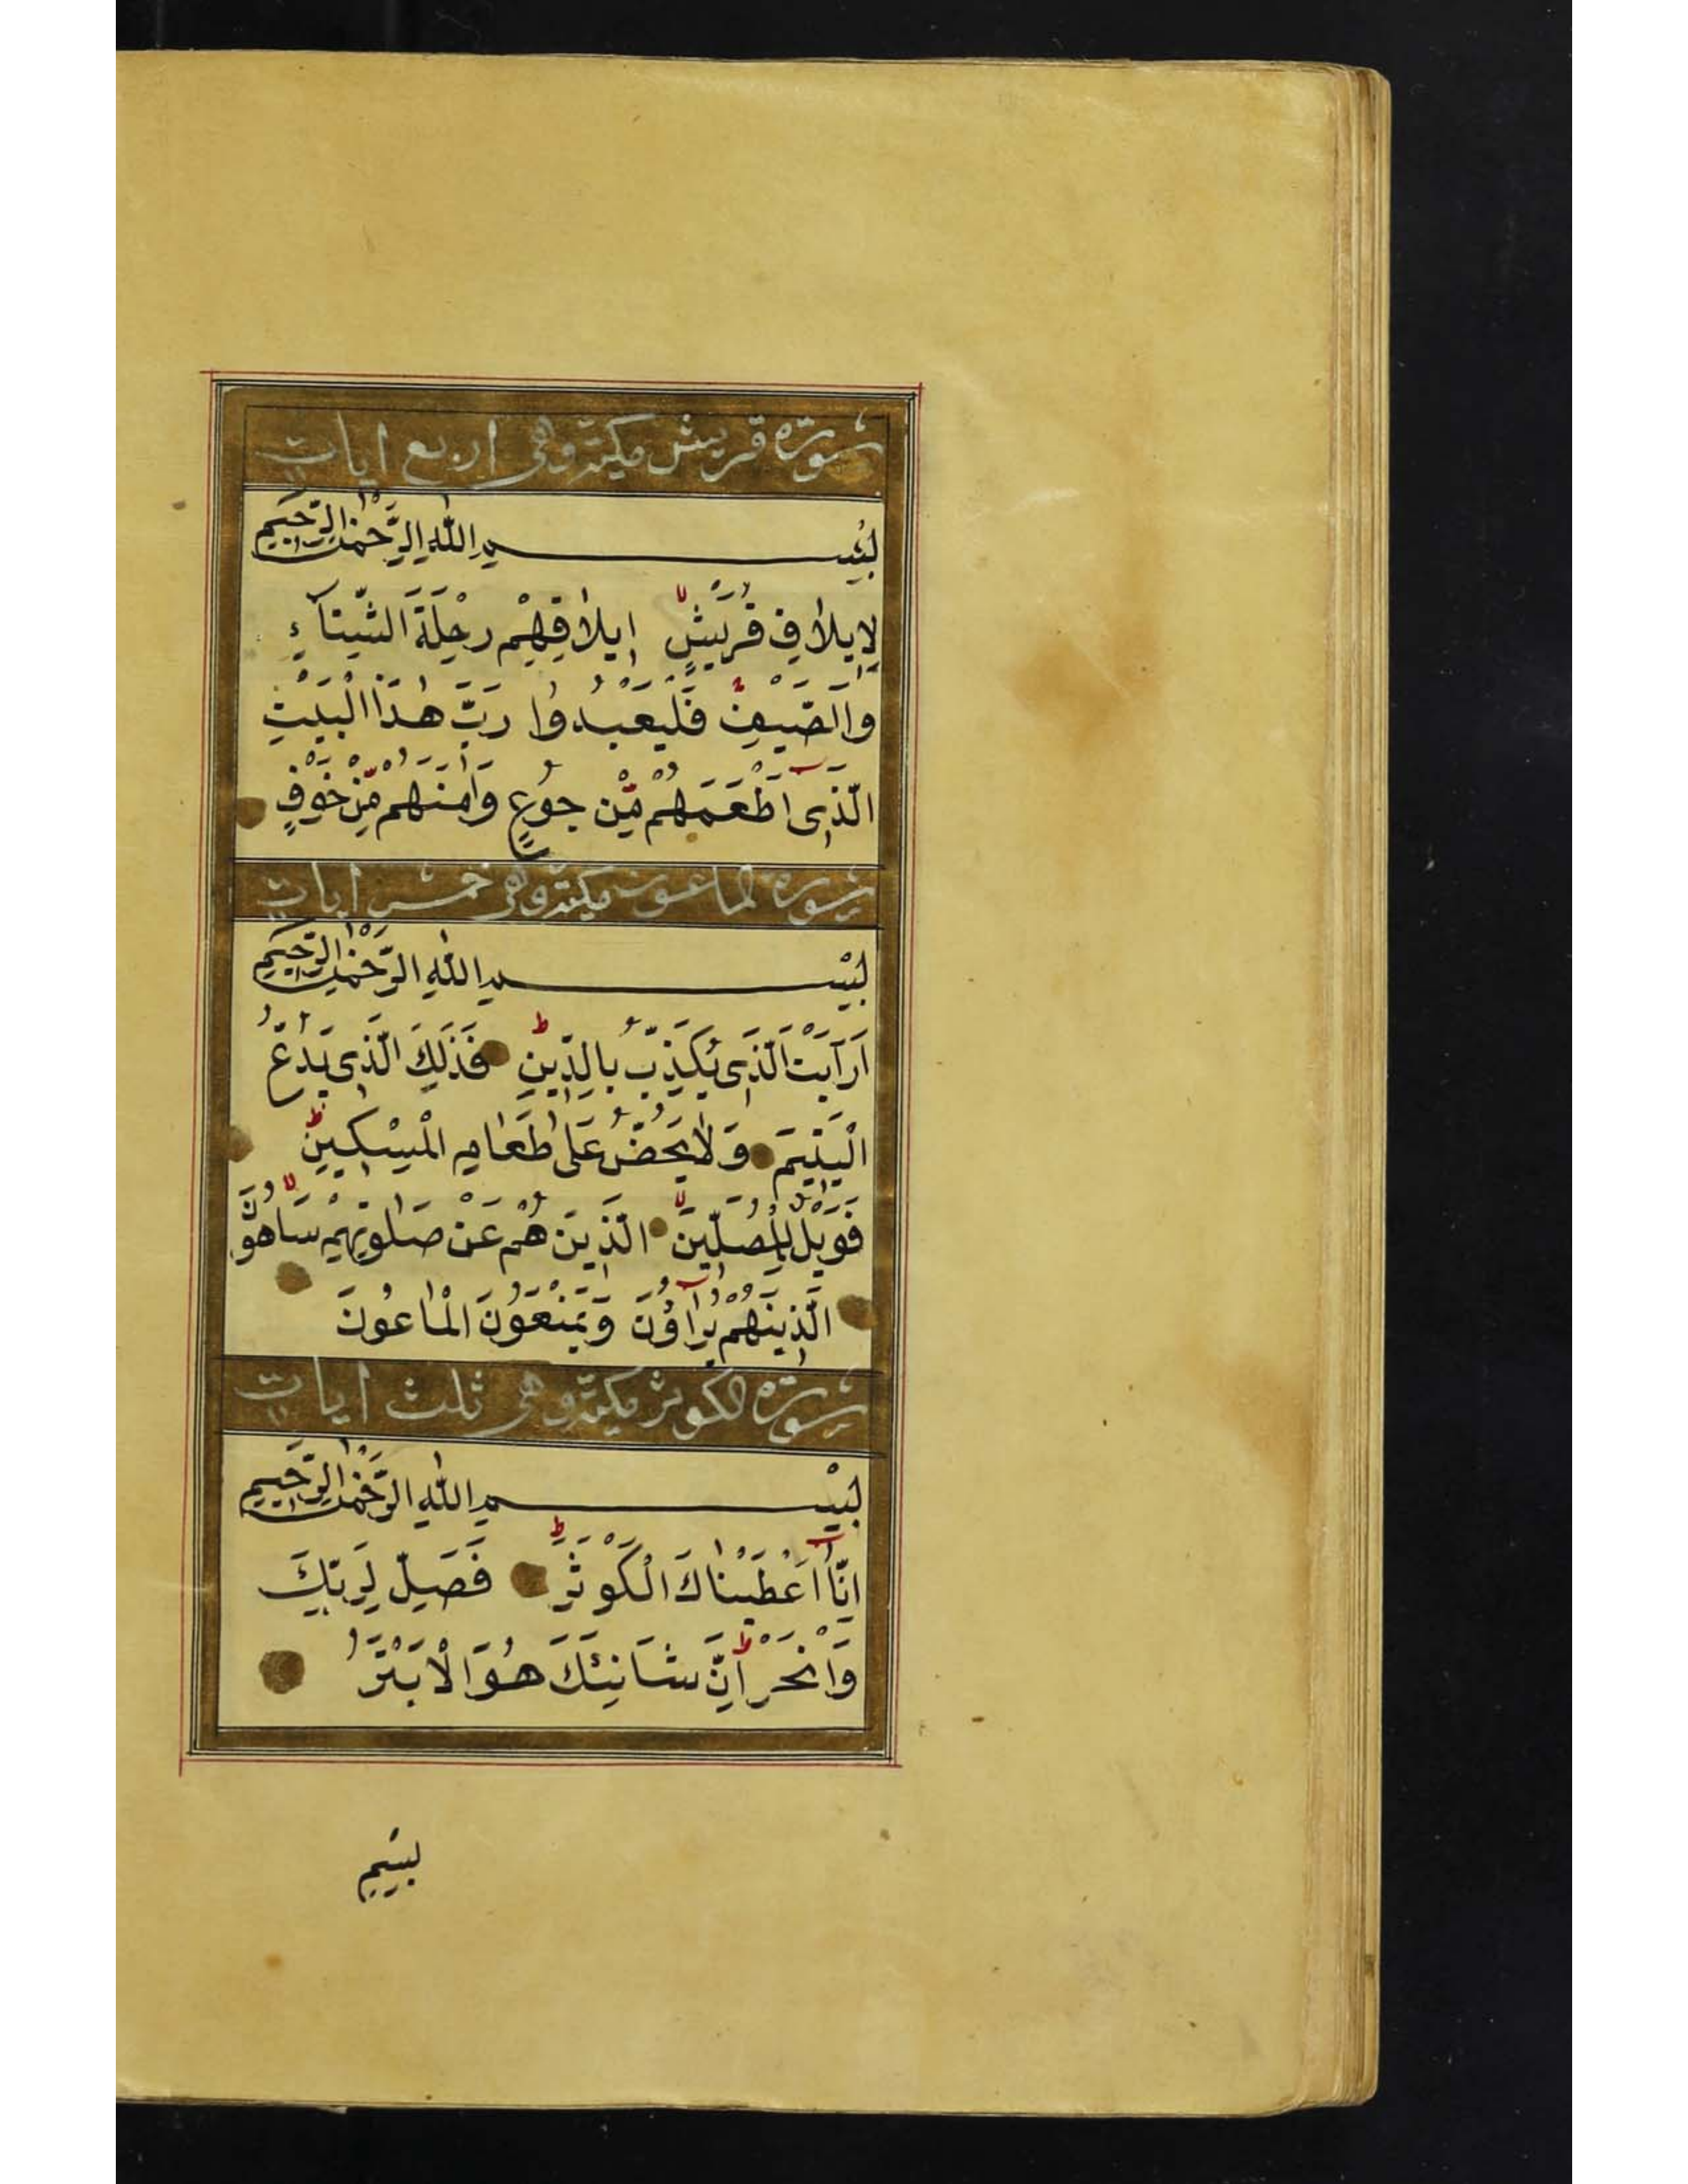 سورة قريش مكية وهى اربع ايات
بِسْمِ اللّٰهِ الرَّحْمٰنِ الرَّحِيمِ
لِاِيلَافِ قُرَيْشٍ اِيلَافِهِمْ رِحْلَةَ الشِّتَآءِ
وَالصَّيْفِ فَلْيَعْبُدُوا رَبَّ هٰذَا الْبَيْتِ
الَّذِى اَطْعَمَهُمْ مِّنْ جُوعٍ وَاٰمَنَهُمْ مِّنْ خَوْفٍ
سورة الماعون مكية وهى خمس ايات
بِسْمِ اللّٰهِ الرَّحْمٰنِ الرَّحِيمِ
اَرَاَيْتَ الَّذِى يُكَذِّبُ بِالدِّينِ فَذٰلِكَ الَّذِى يَدُعُّ
الْيَتِيمَ وَلَا يَحُضُّ عَلٰى طَعَامِ الْمِسْكِينِ
فَوَيْلٌ لِلْمُصَلِّينَ الَّذِينَ هُمْ عَنْ صَلٰوتِهِمْ سَاهُونَ
الَّذِينَ هُمْ يُرَآؤُنَ وَيَمْنَعُونَ الْمَاعُونَ
سورة الكوثر مكية وهى ثلث ايات
بِسْمِ اللّٰهِ الرَّحْمٰنِ الرَّحِيمِ
اِنَّآ اَعْطَيْنَاكَ الْكَوْثَرَ فَصَلِّ لِرَبِّكَ
وَانْحَرْ اِنَّ شَانِئَكَ هُوَ الْاَبْتَرُ
بسيم